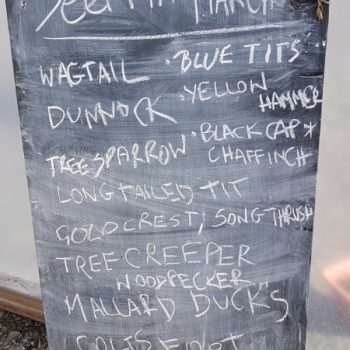 MARCH
WAGTAIL · BLUE TITS
DUNNOCK · YELLOW HAMMER
TREE SPARROW · BLACK CAP *
CHAFFINCH
LONG TAILED TIT
GOLDCREST, SONG THRUSH
TREE CREEPER
WOODPECKER
MALLARD DUCKS